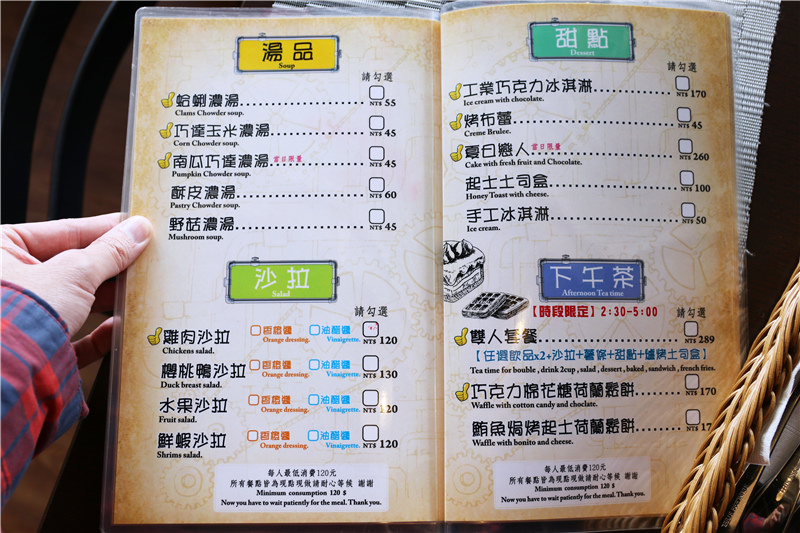 湯品
Soup
請勾選
蛤蜊濃湯 NT$ 55
Clams Chowder soup.
巧達玉米濃湯 NT$ 45
Corn Chowder soup.
南瓜巧達濃湯 當日限量 NT$ 45
Pumpkin Chowder soup.
酥皮濃湯 NT$ 60
Pastry Chowder soup.
野菇濃湯 NT$ 45
Mushroom soup.
沙拉
Salad
請勾選
雞肉沙拉 香橙醬 油醋醬 NT$ 120
Chickens salad. Orange dressing. Vinaigrette.
櫻桃鴨沙拉 香橙醬 油醋醬 NT$ 130
Duck breast salad. Orange dressing. Vinaigrette.
水果沙拉 香橙醬 油醋醬 NT$ 120
Fruit salad. Orange dressing. Vinaigrette.
鮮蝦沙拉 香橙醬 油醋醬 NT$ 120
Shrims salad. Orange dressing. Vinaigrette.
每人最低消費120元
所有餐點皆為現點現做請耐心等候 謝謝
Minimum consumption 120 $
Now you have to wait patiently for the meal. Thank you.
甜點
Dessert
請勾選
工業巧克力冰淇淋 NT$ 170
Ice cream with chocolate.
烤布蕾 NT$ 45
Creme Brulee.
夏日戀人 當日限量 NT$ 260
Cake with fresh fruit and Chocolate.
起士土司盒 NT$ 100
Honey Toast with cheese.
手工冰淇淋 NT$ 50
Ice cream.
下午茶
Afternoon Tea time
【時段限定】2:30-5:00 請勾選
雙人套餐 NT$ 289
【任選飲品x2+沙拉+薯條+甜點+爐烤土司盒】
Tea time for bouble , drink 2cup , salad , dessert , baked , sandwich , french fries.
巧克力棉花糖荷蘭鬆餅 NT$ 170
Waffle with cotton candy and choclate.
鮪魚焗烤起士荷蘭鬆餅 NT$ 17
Waffle with bonito and cheese.
每人最低消費120元
所有餐點皆為現點現做請耐心等候 謝謝
Minimum consumption 120 $
Now you have to wait patiently for the meal. Thank you.